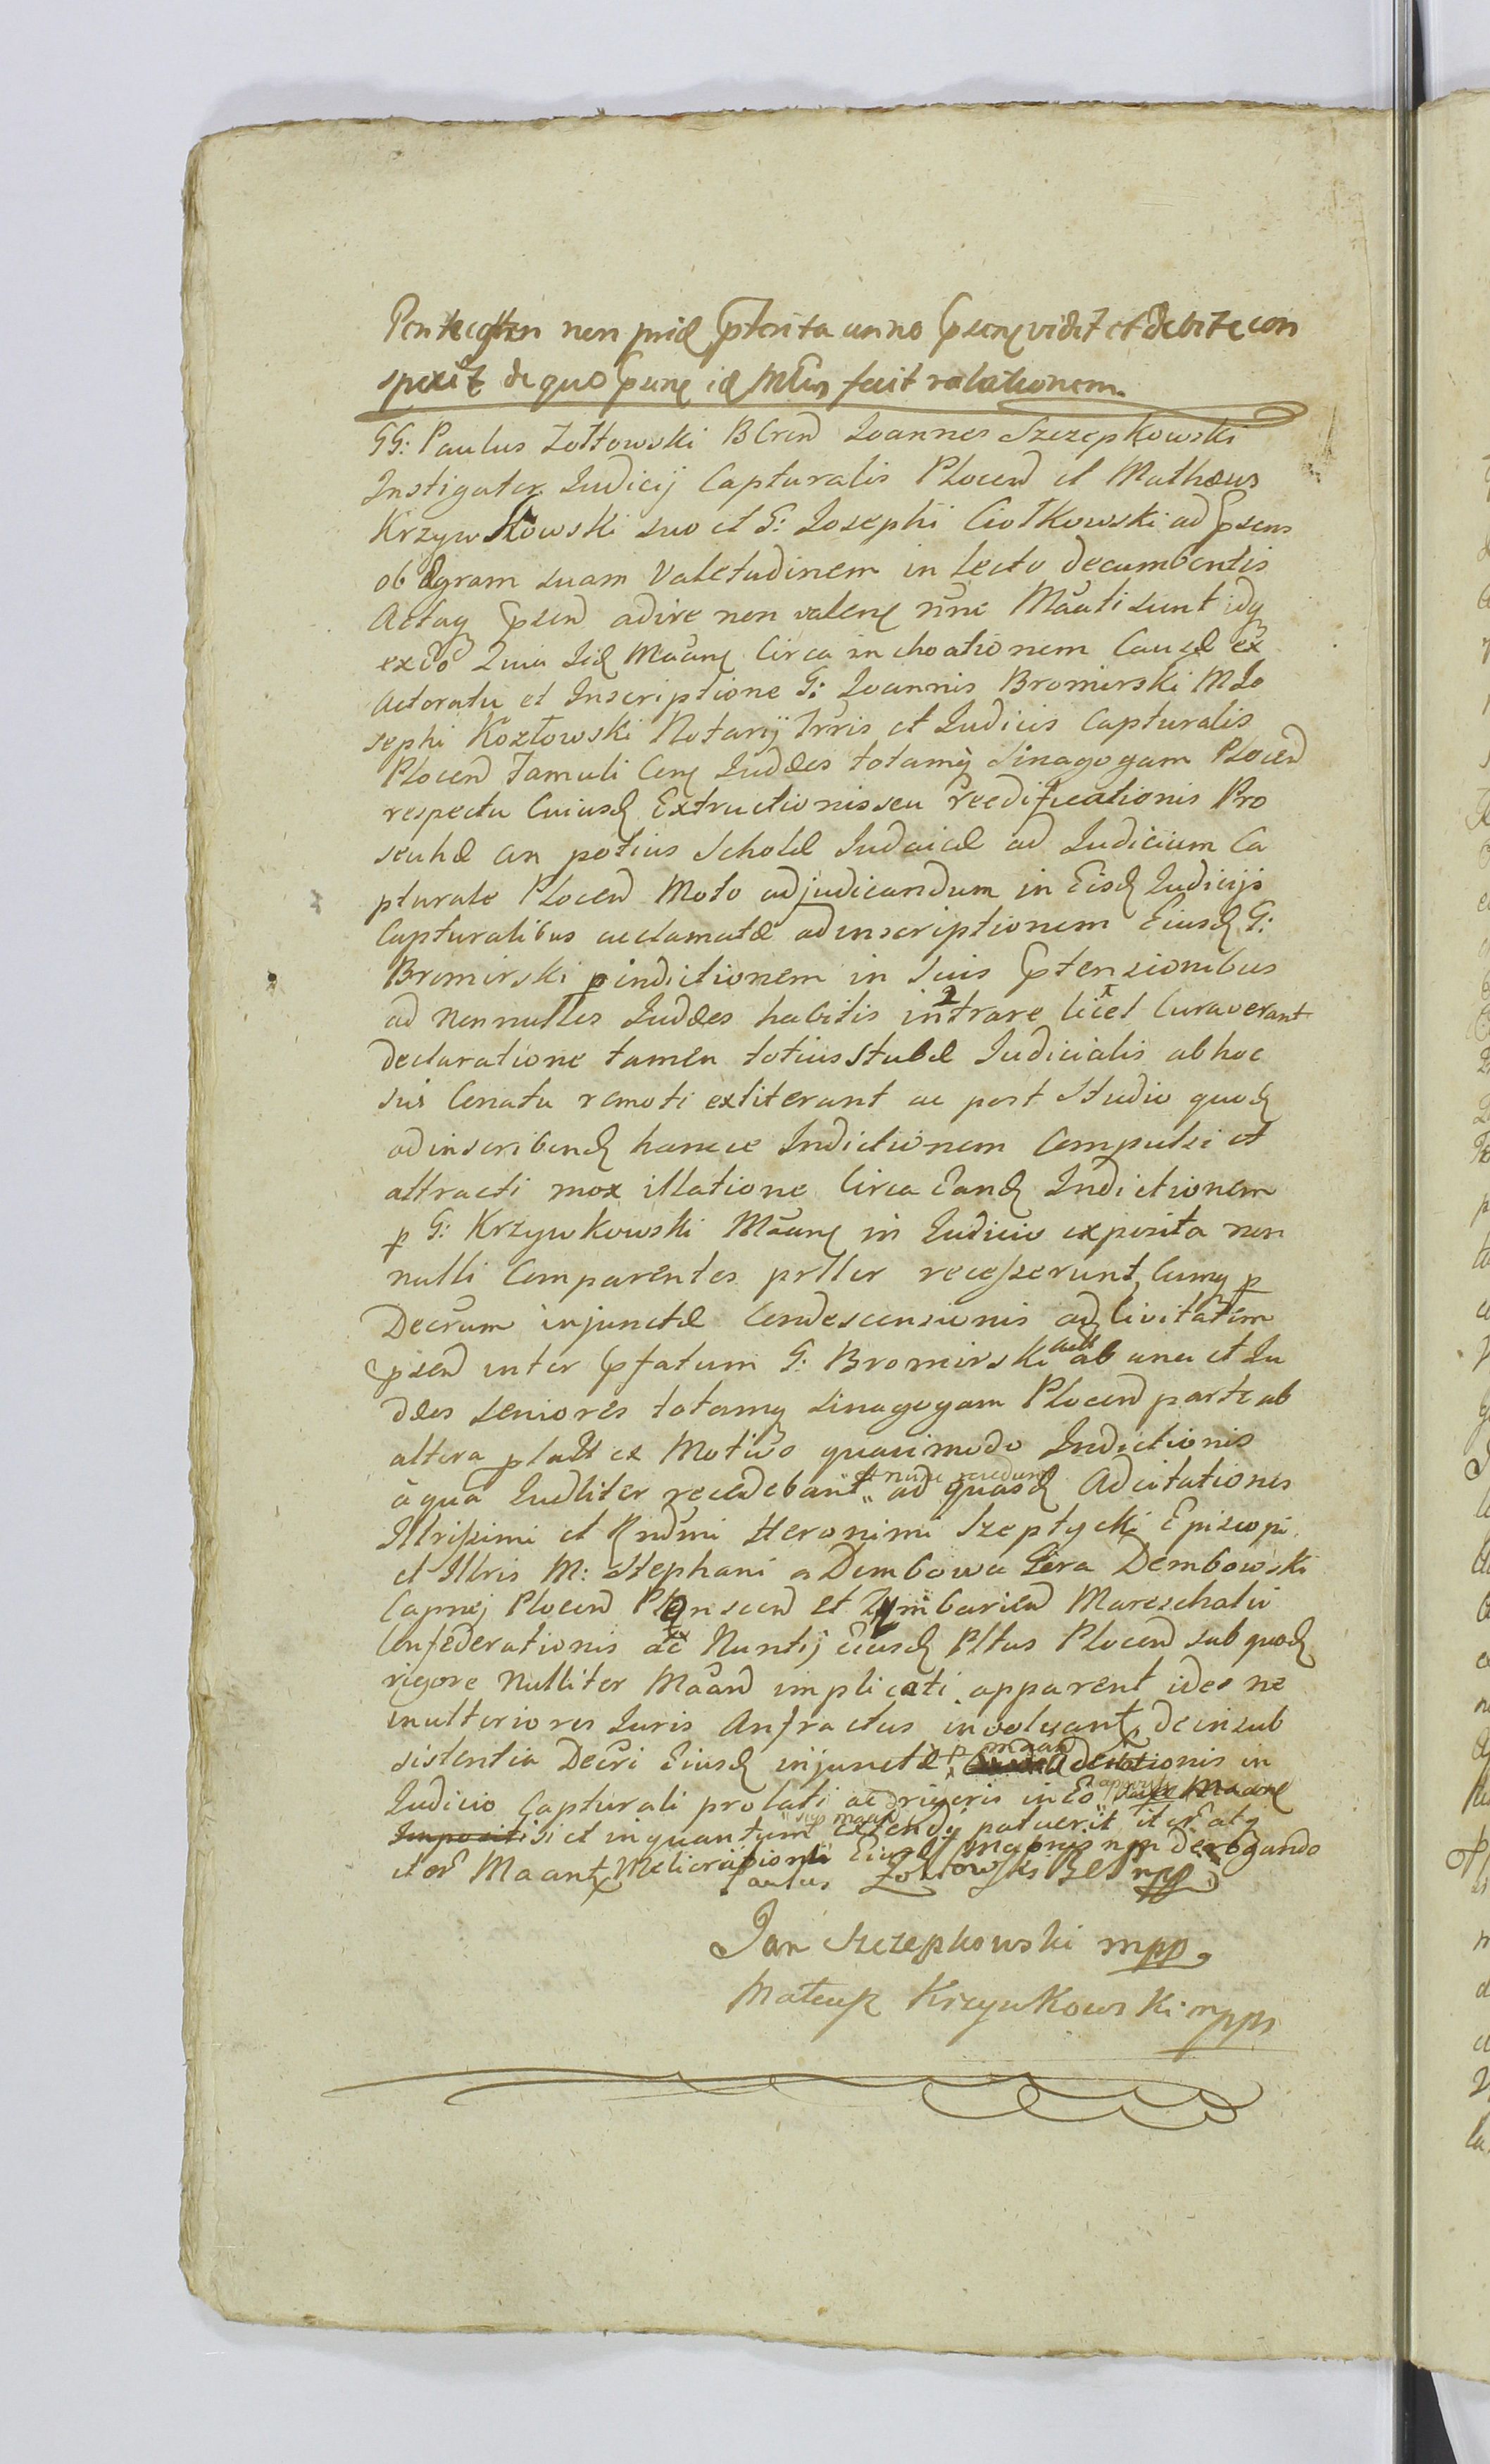 Pentecosten non prid pterita anno psenę vidit et debite con
spexit de quo psenę id Mtis fecit relationem.
GG: Paulus Zołtowski BCren Ioannes Szczepkowski
Instigator Iudicij Capturalis Plocen et Mathæus
Krzywkowski suo et G: Iosephi Ciołkowski ad psens
ob ægram suam Valetudinem in lecto decumbentis
Actaq psen adire non valenę nunc Maati sunt idq
exeo Quia iid Maanę Circa inchoationem Causæ ex
Actoratu et Inscriptione G: Ioannis Bromirski M Io
sephi Kozłowski Notarij Trris et Iudicis Capturalis
Plocen Famuli Cenę Iudæos totamq Sinagogam Plocen
respectu Cuiusd Extructionis seu reedificationis Pro
seuhæ an potius Scholæ Iudaicæ ad Iudicium Ca
pturale Plocen Moto adjudicandum in Eisd Iudicijs
Capturalibus acclamatæ ad inscriptionem Eiusd G:
Bromirski p indictionem in suis Ptensionibus
ad nonnullos Iudæos habitis intrare licet Curaverant
declaratione tamen totius Stubæ Iudicialis ab hoc
suo Conatu remoti extiterant ac post Studio quod
ad inscribend hancce Indictionem Compulsi et
attracti mox illatione Circa Eand Indictionem
p G: Krzywkowski Maanę in Iudicio exposita non
nulli Comparentes prller recesserunt, Cumq p
Decrum injunctæ Condescensionis ad Civitatem
psen inter pfatum G: Bromirski act ab una et Iu
dæos seniores totamq Sinagogam Plocen parte ab
altera platt ex Motivo quasimodo Indictionis
à qua Iudliter recedebant et nunc recedunt ad quasd Adcitationes
Illrissimi et Rndmi Heronimi Szeptycki Episcopi
et Illris M: Stephani a Dembowa Gora Dembowski
Capnej Plocen Płonscen et Zymbarien Mareschalci
Confederationis ac Nuntij Eiusd Pltus Plocen sub quod
rigore Nulliter Maand implicati apparent ideo ne
in ulteriores Iuris Anfractus involvant, de insub
sistentia Decri Eiusd injunctæ p maan Adcitationis in
Iudicio Capturali prolati ac rigoris in Eo Maane
Impositi si et in quantum Extendi patuerit iterat
iter Maantę Melioratione Eiusd Manus npp derogando
Paulus Zołtowski BC mpp
Jan Szczepkowski mpp
Mateusz Krzywkowski mpp